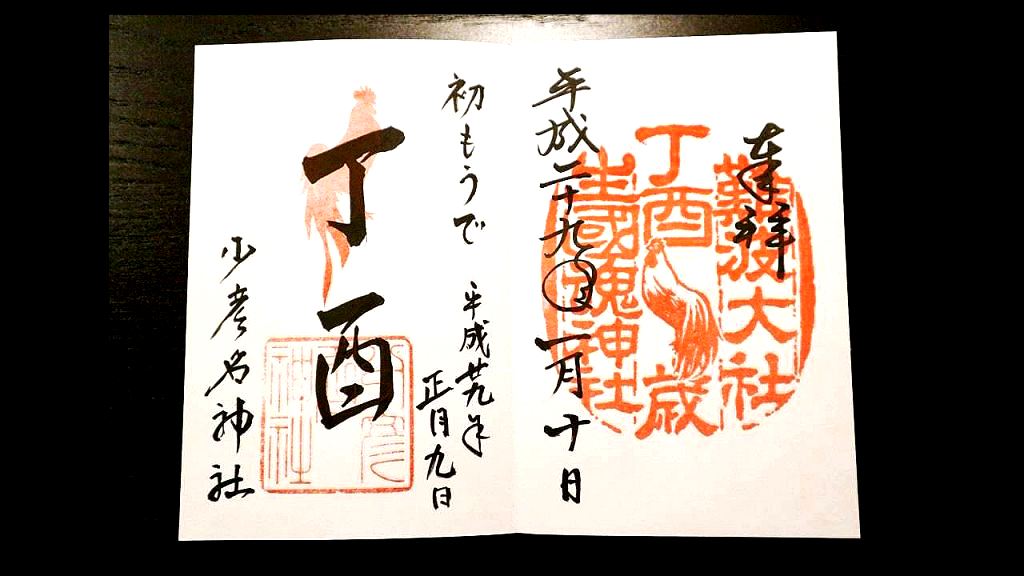 奉拝
難波大社
丁酉歳
生國魂神社
平成二十九年一月十日
初もうで
平成廿九年
正月九日
丁酉
少彦名神社
神社